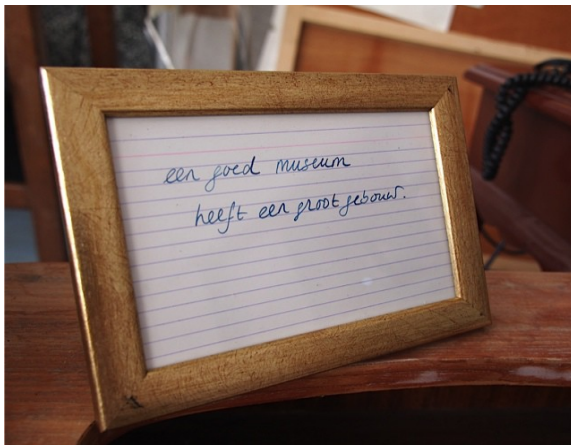 een goed museum
heeft een groot gebouw.